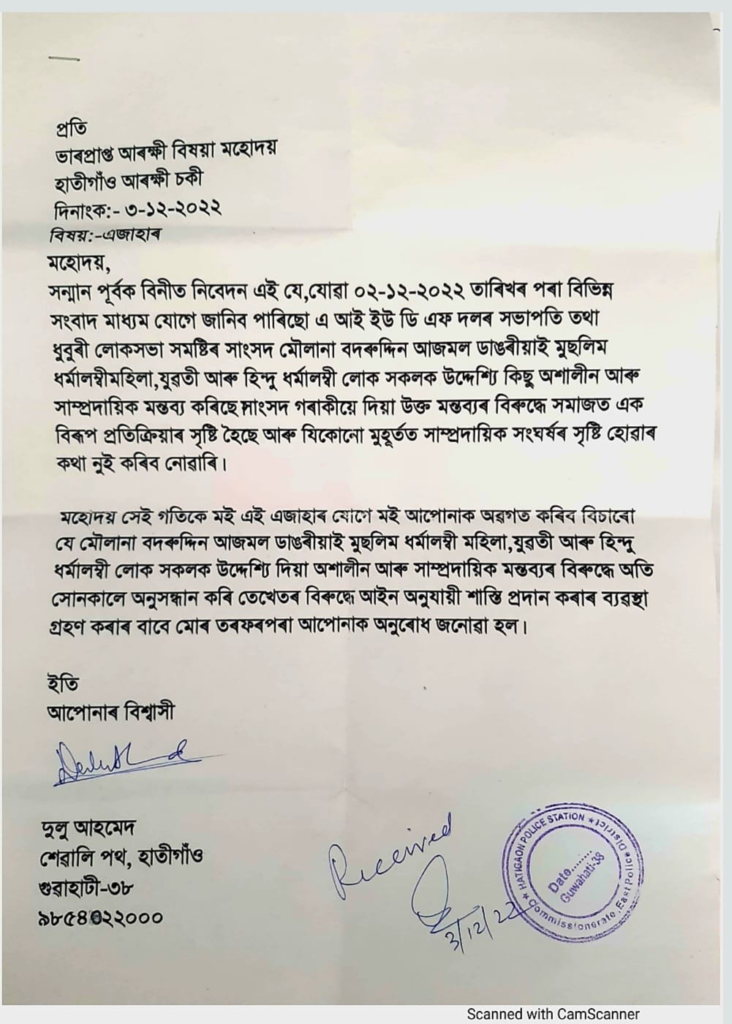 প্ৰতি
ভাৰপ্ৰাপ্ত আৰক্ষী বিষয়া মহোদয়
হাতীগাঁও আৰক্ষী চকী
দিনাংক:- ৩-১২-২০২২
বিষয়:-এজাহাৰ
মহোদয়,
সন্মান পূৰ্বক বিনীত নিবেদন এই যে,যোৱা ০২-১২-২০২২ তাৰিখৰ পৰা বিভিন্ন
সংবাদ মাধ্যম যোগে জানিব পাৰিছো এ আই ইউ ডি এফ দলৰ সভাপতি তথা
ধুবুৰী লোকসভা সমষ্টিৰ সাংসদ মৌলানা বদৰুদ্দিন আজমল ডাঙৰীয়াই মুছলিম
ধৰ্মালম্বীমহিলা,যুৱতী আৰু হিন্দু ধৰ্মালম্বী লোক সকলক উদ্দেশ্যি কিছু অশালীন আৰু
সাম্প্ৰদায়িক মন্তব্য কৰিছে সাংসদ গৰাকীয়ে দিয়া উক্ত মন্তব্যৰ বিৰুদ্ধে সমাজত এক
বিৰূপ প্ৰতিক্ৰিয়াৰ সৃষ্টি হৈছে আৰু যিকোনো মুহূৰ্তত সাম্প্ৰদায়িক সংঘৰ্ষৰ সৃষ্টি হোৱাৰ
কথা নুই কৰিব নোৱাৰি।
মহোদয় সেই গতিকে মই এই এজাহাৰ যোগে মই আপোনাক অৱগত কৰিব বিচাৰো
যে মৌলানা বদৰুদ্দিন আজমল ডাঙৰীয়াই মুছলিম ধৰ্মালম্বী মহিলা,যুৱতী আৰু হিন্দু
ধৰ্মালম্বী লোক সকলক উদ্দেশ্যি দিয়া অশালীন আৰু সাম্প্ৰদায়িক মন্তব্যৰ বিৰুদ্ধে অতি
সোনকালে অনুসন্ধান কৰি তেখেতৰ বিৰুদ্ধে আইন অনুযায়ী শাস্তি প্ৰদান কৰাৰ ব্যৱস্থা
গ্ৰহণ কৰাৰ বাবে মোৰ তৰফৰপৰা আপোনাক অনুৰোধ জনোৱা হল।
ইতি
আপোনাৰ বিশ্বাসী
দুলু আহমেদ
শেৱালি পথ, হাতীগাঁও
গুৱাহাটী-৩৮
৯৮৫৪0২২০০০
Received
3/12/22
HATIGAON POLICE STATION * District * Commissionerate, East Police
Date........
Guwahati-38
Scanned with CamScanner